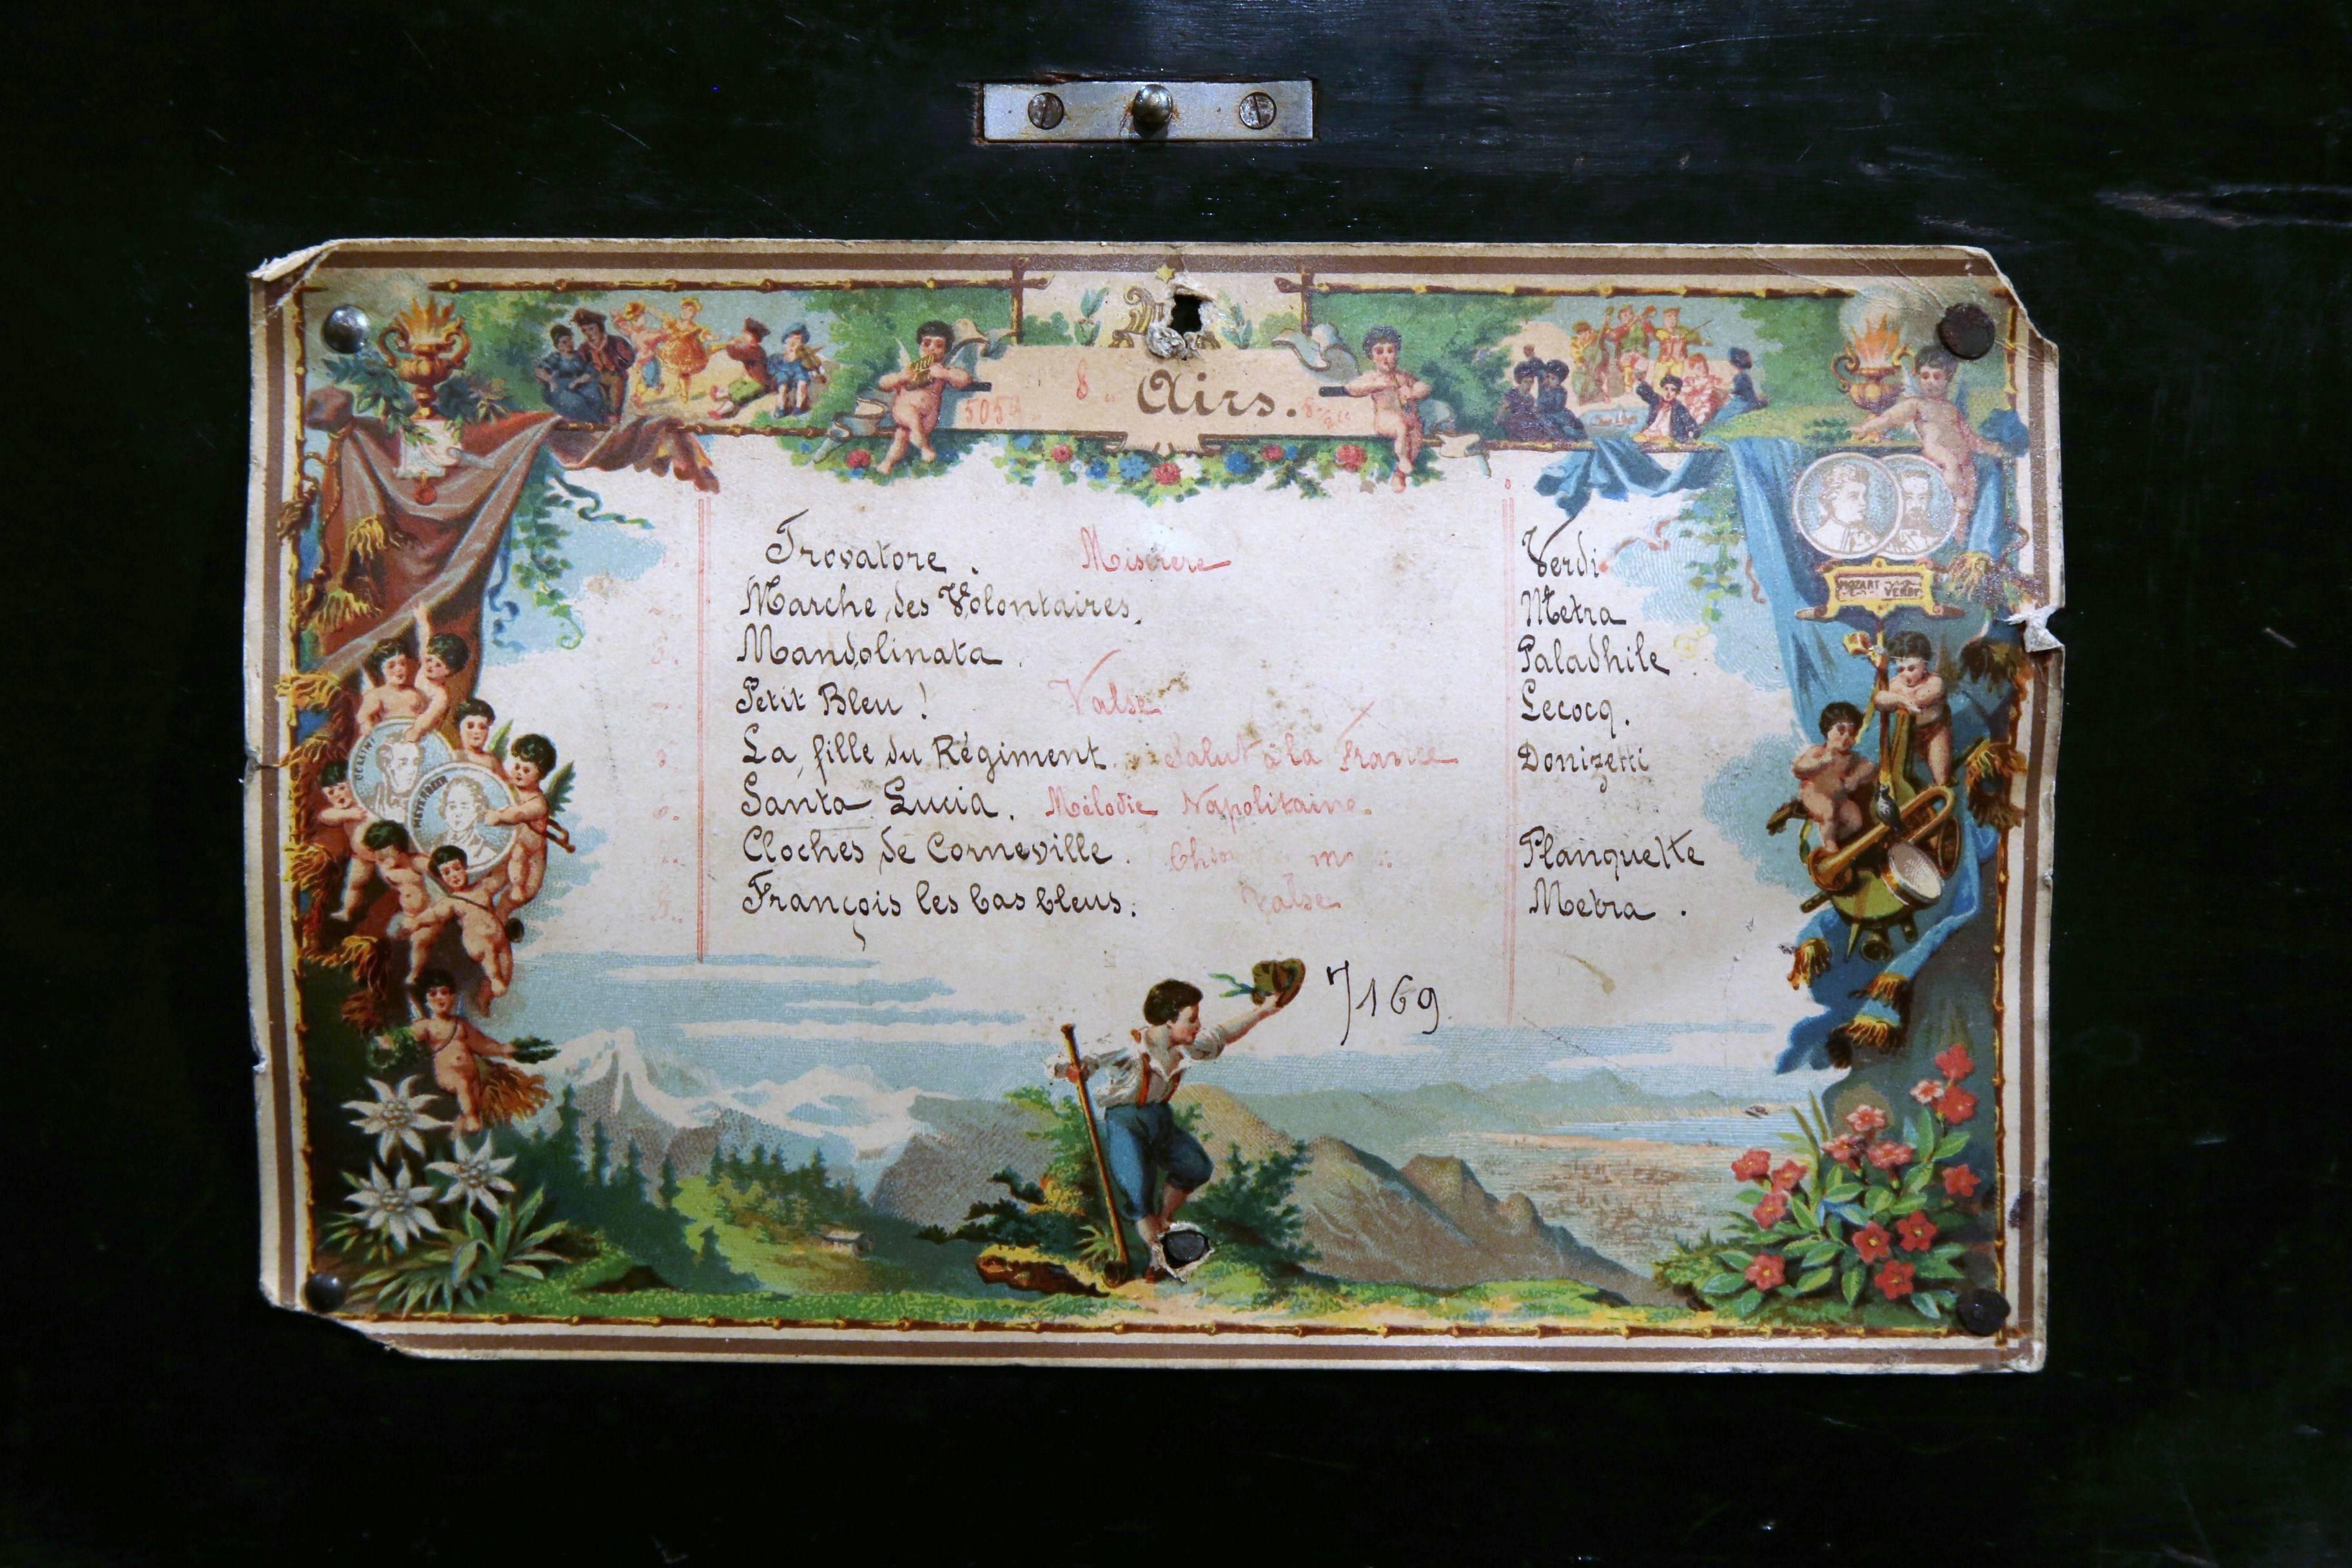 8 Airs.
Trovatore. Miserere Verdi
Marche des Volontaires. Metra
Mandolinata. Paladhile
Petit Bleu! Valse Lecocq.
La fille du Régiment. Salut à la France Donizetti
Santa Lucia. Mélodie Napolitaine.
Cloches de Corneville. Planquette
François les bas bleus. Valse Metra.
7169
BELLINI
MEYERBEER
MOZART
VERDI